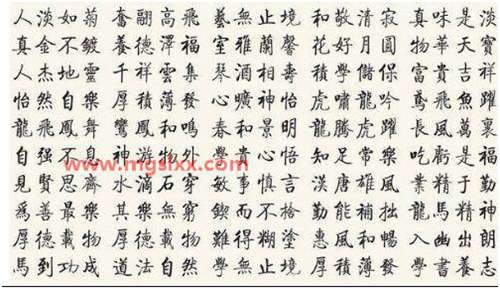 人淡如菊 奮翮高飛 藝無止境 和敬清寂 真味是淡
真金不鍍 養德澤福 室雅蘭馨 花好月圓 物華天寶
人杰地靈 千祥雲集 琴 學儲 富貴吉祥
怡然自樂 厚積薄發 心曠神怡 虎嘯龍吟 鳶飛魚躍
龍飛鳳舞 鸞鳳和鳴 春和景明 龍騰虎躍 長風萬裏
自强不息 神物外 心悟 知足常樂 吃虧是福
見賢思齊 水滴石穿 敏事慎言 漢唐雄風 業精于勤
爲善最樂 其樂無窮 而不捨 勤能補拙 龍馬精神
厚德載物 厚德載物 難得糊塗 惠風和暢 入幽出朗
馬到功成 道法自然 學無止境 厚積薄發 學書養志
www.mgslxx.com